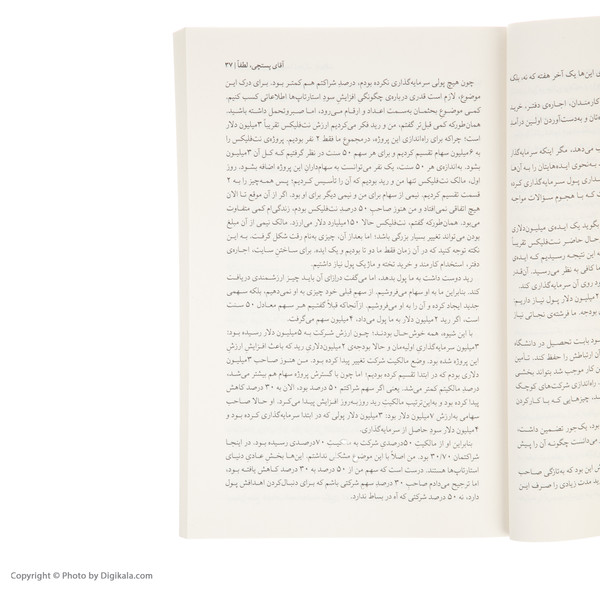 آقای پستچی، لطفاً | ۳۷
چون هیچ پولی سرمایه‌گذاری نکرده بودم، درصد شراکتم هم کمتر بود. برای درک این
موضوع، لازم است قدری درباره‌ی چگونگی افزایش سود استارتاپ‌ها اطلاعاتی کسب کنیم.
کمی موضوع بحثمان به‌سمت اعداد و ارقام می‌رود، اما صبر و تحمل داشته باشید.
همان‌طورکه کمی قبل‌تر گفتم، من و رید فکر می‌کردیم ارزش نت‌فلیکس تقریباً ۳میلیون دلار
است؛ چراکه برای راه‌اندازی این پروژه، در مجموع ما فقط ۲ نفر بودیم. پروژه‌ی نت‌فلیکس را
به ۶میلیون سهام تقسیم کردیم و برای هر سهم ۵۰ سنت در نظر گرفتیم که کل آن ۳میلیون
بشود. به‌اندازه‌ی هر ۵۰ سنت، یک نفر می‌توانست به سهام‌داران این پروژه اضافه بشود. روز
اول، مالک نت‌فلیکس تنها من و رید بودیم که آن را تأسیس کردیم؛ پس همه‌چیز را به ۲
قسمت تقسیم کردیم. نیمی از سهام برای من و نیمی دیگر برای او بود. اگر از آن موقع تا الان
هیچ اتفاقی نمی‌افتاد و من هنوز صاحب ۵۰ درصد نت‌فلیکس بودم، زندگی‌ام کمی متفاوت
می‌بود. همان‌طورکه گفتم، نت‌فلیکس حالا ۱۵۰میلیارد دلار می‌ارزد. مالک نیمی از آن مبلغ
بودن می‌تواند تغییر بسیار بزرگی باشد؛ اما بعد از آن، چیزی به‌نام رقت شکل گرفت. به این
نکته توجه کنید که در آن زمان فقط ما دو تا بودیم و یک ایده. برای ساختن سایت، اجاره‌ی
دفتر، استخدام کارمند و خرید تخته و ماژیک پول نیاز داشتیم.
رید دوست داشت به ما پول بدهد، اما می‌گفت درازای آن باید چیز ارزشمندی دریافت
کند. بنابراین ما به او سهام می‌فروشیم. از سهم قبلی خود چیزی به او نمی‌دهیم، بلکه سهمی
جدید ایجاد کرده و آن را به او می‌فروشیم. ازآنجاکه قبلاً گفتیم هر سهم معادل ۵۰ سنت
است، اگر رید ۲میلیون دلار به ما پول می‌داد، ۴میلیون سهم می‌گرفت.
با این شیوه، همه خوش‌حال بودند؛ چون ارزش شرکت به ۵میلیون دلار رسیده بود:
۳میلیون سرمایه‌گذاری اولیه‌مان و حالا بودجه‌ی ۲میلیون‌دلاری رید که باعث افزایش ارزش
این پروژه شده بود. وضع مالکیت شرکت تغییر پیدا کرده بود. من هنوز صاحب ۳میلیون
دلاری بودم که در ابتدا تقسیم کرده بودیم؛ اما چون با گسترش پروژه سهام هم بیشتر می‌شد،
درصد مالکیتم کمتر می‌شد. یعنی اگر سهم شراکتم ۵۰ درصد بود، الان به ۳۰ درصد کاهش
پیدا کرده بود و به‌این‌ترتیب مالکیت رید روزبه‌روز افزایش پیدا می‌کرد. او حالا صاحب
سهامی به‌ارزش ۷میلیون دلار بود: ۳میلیون دلار پولی که در ابتدا سرمایه‌گذاری کرده بود و
۴میلیون دلار سود حاصل از سرمایه‌گذاری.
بنابراین او از مالکیت ۵۰درصدی شرکت به مالکیت ۷۰درصدی رسیده بود. در اینجا
شراکتمان ۳۰/۷۰ بود. من اصلاً با این موضوع مشکلی نداشتم. این‌ها بخش عادی دنیای
استارتاپ‌ها هستند. درست است که سهم من از ۵۰ درصد به ۳۰ درصد کاهش یافته بود،
اما ترجیح می‌دادم صاحب ۳۰ درصد سهم شرکتی باشم که برای دنبال‌کردن اهدافش پول
دارد، نه ۵۰ درصد شرکتی که آه در بساط ندارد.
این‌ها یک آخر هفته که نه، بلکه
کارمندان، اجاره‌ی دفتر، خرید
تان و به‌دست‌آوردن اولین درآمد
می‌دهد، مگر اینکه سرمایه‌گذار
به‌نحوی ایده‌هایتان را به آن‌ها
پول سرمایه‌گذاری کرده
که با هجوم سؤالات مواجه
بگوید یک ایده‌ی میلیون‌دلاری
حال حاضر نت‌فلیکس تقریباً
این نتیجه رسیدیم که ایده‌ی
ما کافی به نظر می‌رسید. آن‌قدر
روی آن سرمایه‌گذاری کند.
۲میلیون دلار پول نیاز داریم؛
بودجه. ما فرشته‌ی نجاتی نیاز
بابت تحصیل در دانشگاه
آن ارتباطش را حفظ کند. تأمین
کار موجب شد بتواند بخشی
راه‌اندازی شرکت‌های کوچک
چیزهایی که با کارکردن
بود. یک‌جور تضمین داشت،
می‌دانست چگونه آن را پیش
این بود که به‌تازگی صاحب
رید مدت زیادی را صرف این
Copyright © Photo by Digikala.com